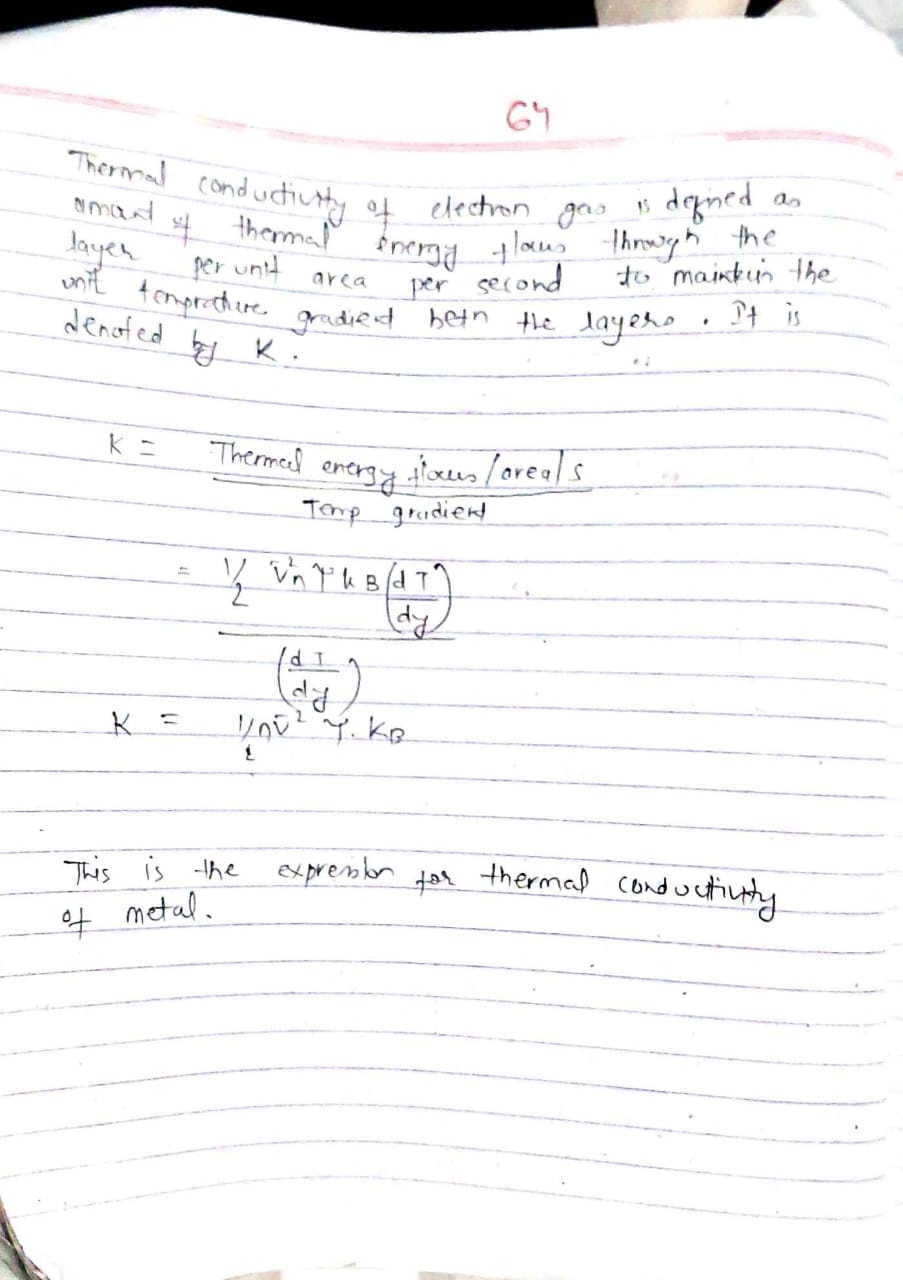 64
Thermal conductivity of electron gas is defined as
amount of thermal energy flows through the
layer per unit area per second to maintain the
unit temprature gradient betn the layers. It is
denoted by K.
K = Thermal energy flows/area/s
Temp gradient
= 1/2 v̄²n τ kB (dT/dy)
(dT/dy)
K = 1/2 n v̄² τ. KB
This is the expression for thermal conductivity
of metal.